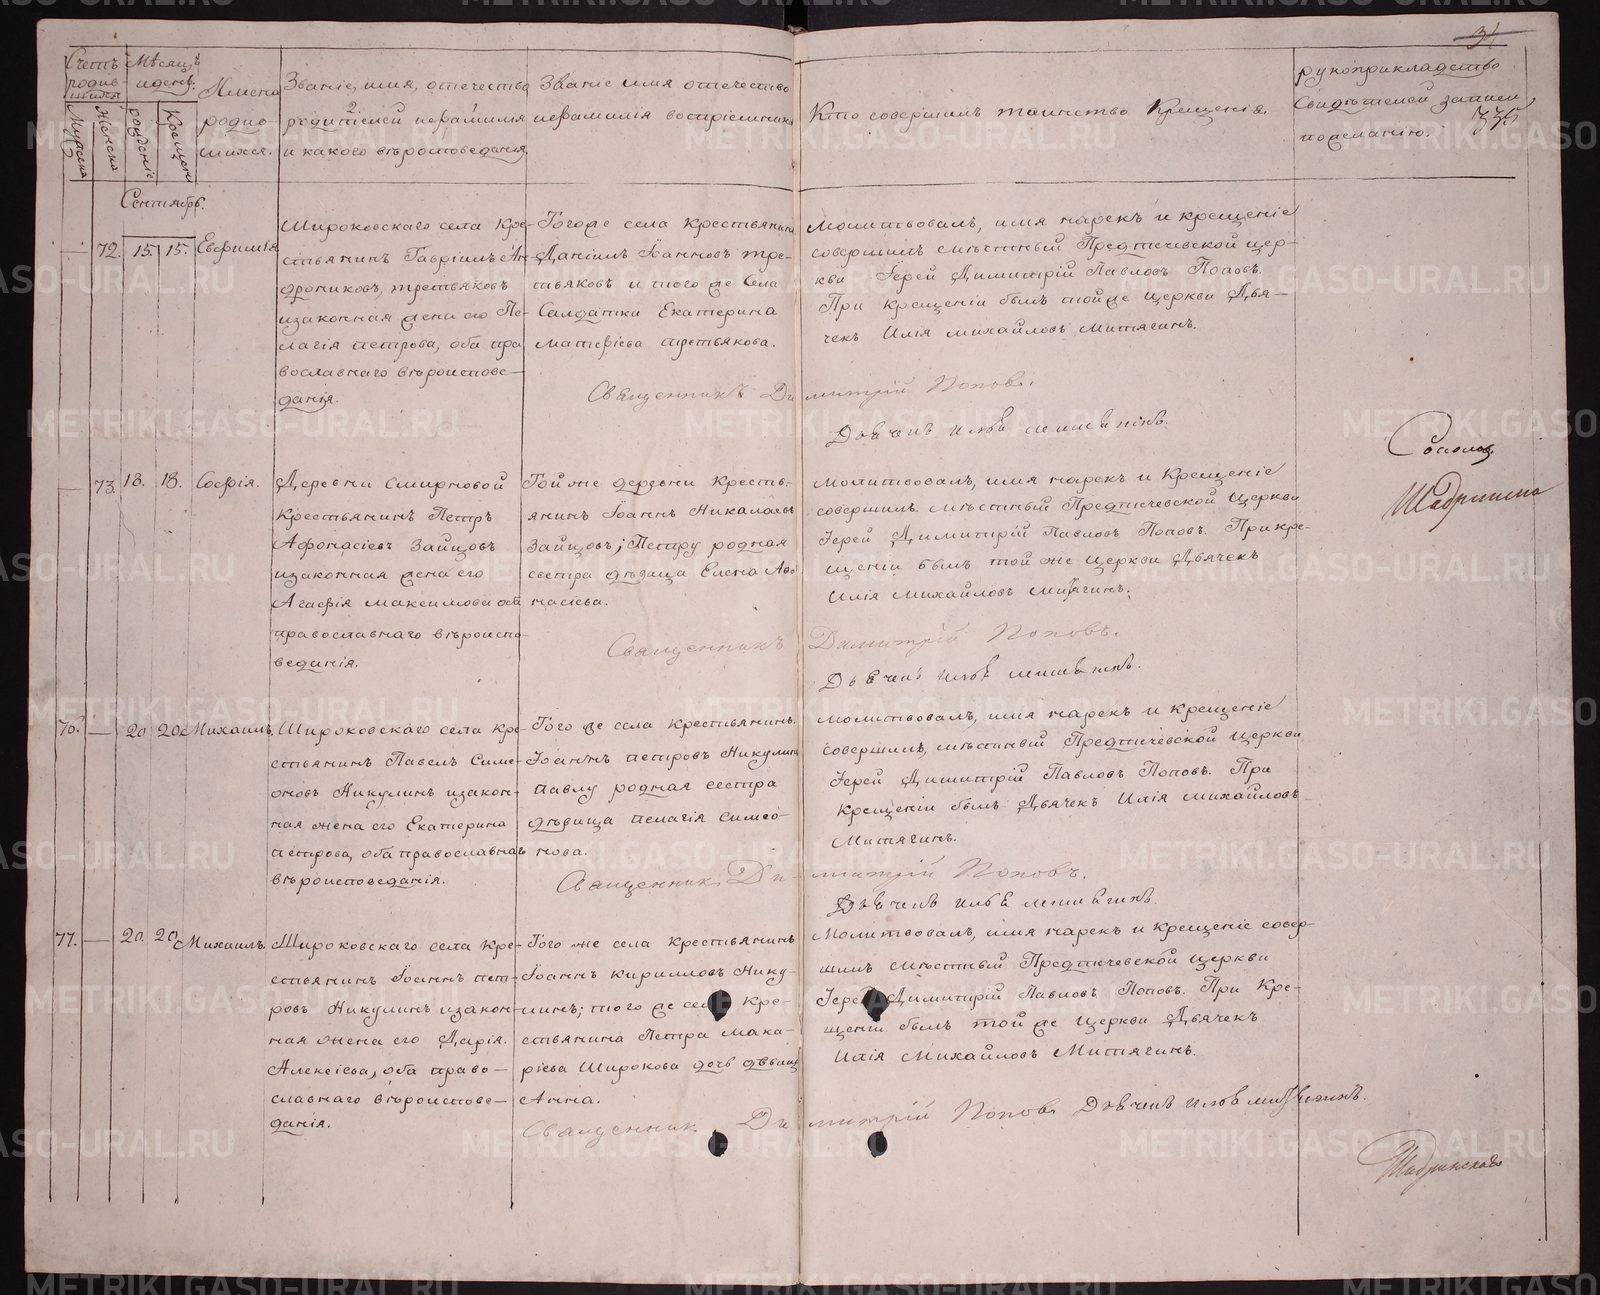 34
Счетъ родив- шихся
Мужеска
Женска
Мѣсяцъ и день.
рожденіе
Крещенія
Имена родив- шихся.
Званіе, имя, отечество
родителей и фамилія
и какого вѣроисповеданія.
Званіе имя отечество
и фамилія воспріемниковъ
Кто совершилъ таинство Крещенія.
рукоприкладство
свидѣтелей записи
по желанію.
Сентябрь.
— 72. 15. 15. Евфимія
Широковскаго села Кре-
стьянинъ Гавріилъ Ан-
дрониковъ, третьяковъ
и законная жена его Пе-
лагія петрова, оба пра
вославнаго вѣроиспове-
данія.
Того же села Крестьянинъ
Даніилъ Іоанновъ тре-
тьяковъ и того же Села
Салдатки Екатерина
Матфіева третьякова.
Молитвовалъ, имя нарекъ и крещеніе
совершилъ мѣстный Предтечевской цер-
кви Іерей Димитрій Павловъ Поповъ.
При крещеніи былъ той же церкви Дья-
чекъ Илія михайловъ Митягинъ.
Священникъ Ди митрій Поповъ.
Дьячекъ Илья
— 73. 18. 18. Софія.
Деревни Смирновой
Крестьянинъ Петръ
Афонасіевъ Зайцовъ
и законная жена его
Агафія максимова оба
православнаго вѣроиспо-
веданія.
Той же деревни Кресть-
янинъ Іоаннъ Николаевъ
Зайцовъ; Петру родная
сестра дѣвица Елена Афо
насіева.
Молитвовалъ, имя нарекъ и Крещеніе
совершилъ. мѣстный Предтечевской Церкви
Іерей Димитрій Павловъ Поповъ. При кре-
щеніи былъ той же Церкви Дьячекъ
Илія Михайловъ Митягинъ.
Священникъ Димитрій Поповъ.
Дьячекъ Илья
76. — 20. 20. Михаилъ,
Широковскаго села Кре-
стьянинъ Павелъ Симе-
оновъ Никулинъ и закон-
ная жена его Екатерина
петрова, оба православнаго
вѣроисповеданія.
Того же села Крестьянинъ
Іоаннъ петровъ Никулинъ
павлу родная сестра
дѣвица пелагія симео-
нова.
Молитвовалъ, имя нарекъ и крещеніе
совершилъ, мѣстный Предтечевской Церкви
Іерей Димитрій Павловъ Поповъ. При
Крещеніи былъ Дьячекъ Илія михайловъ
Митягинъ.
Священникъ Ди- митрій Поповъ.
Дьячекъ Илья
77. — 20. 20. Михаилъ.
Широковскаго села Кре-
стьянинъ Іоаннъ пет-
ровъ Никулинъ и закон-
ная жена его Дарія.
Алексіева, оба право-
славнаго вѣроиспове-
данія.
Того же села Крестьянинъ
Іоаннъ Кирилловъ Нику-
линъ; того же села Кре-
стьянина Петра Мака-
ріева Широкова дочь дѣвица
Анна.
Молитвовалъ, имя нарекъ и крещеніе совер-
шилъ мѣстный Предтечевской Церкви
Іерей Димитрій Павловъ Поповъ. При Кре-
щеніи былъ той же Церкви Дьячекъ
Илія Михайловъ Митягинъ.
Священникъ Ди митрій Поповъ. Дьячекъ Илья Митягинъ.
METRIKI.GASO-URAL.RU